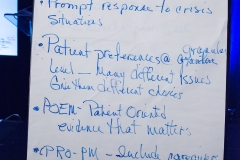 Prompt response to crisis
situations
• Patient preferences @ granular
level – Many different issues
Give them different choices
• POEM – Patient Oriented
evidence that matters
• PRO-PM – Include caregiver